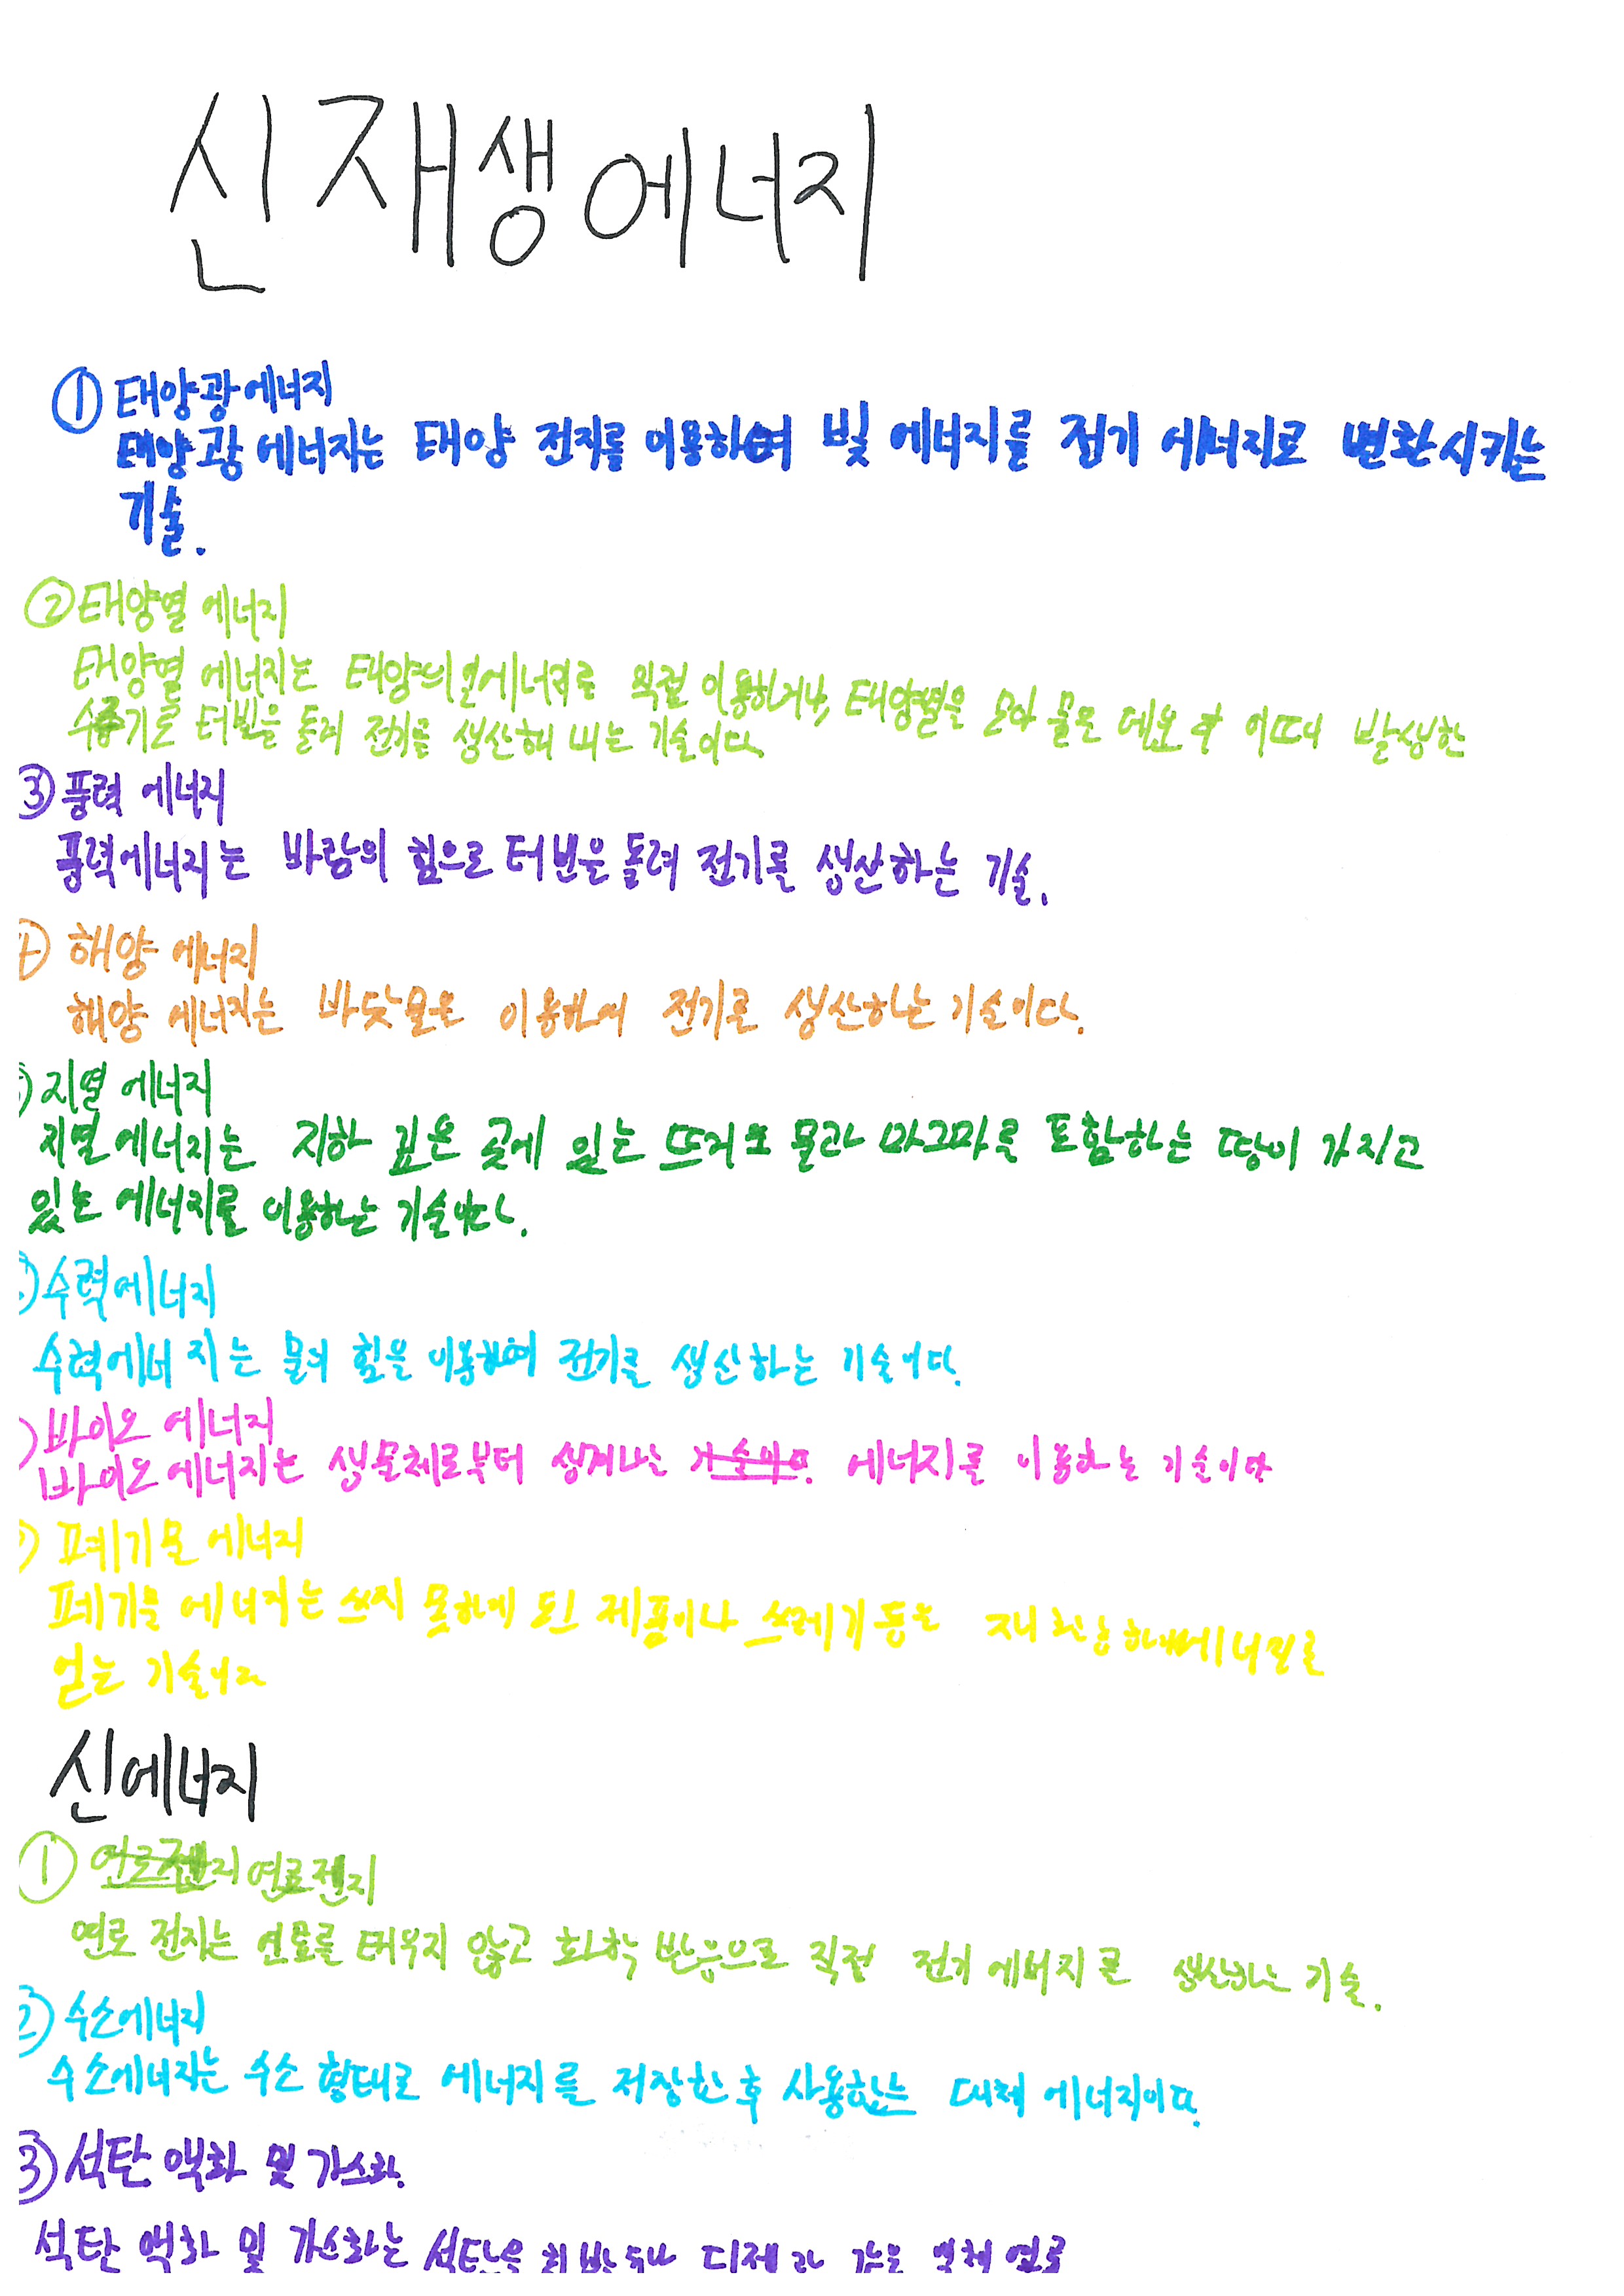 신재생에너지
① 태양광에너지
태양광 에너지는 태양 전지를 이용하여 빛 에너지를 전기 에너지로 변환시키는
기술.
② 태양열 에너지
태양열 에너지는 태양의 열에너지를 직접 이용하거나, 태양열을 모아 물을 데운 후 이때 발생한
수증기로 터빈을 돌려 전기를 생산해 내는 기술이다
③ 풍력 에너지
풍력에너지는 바람의 힘으로 터빈을 돌려 전기를 생산하는 기술.
④ 해양 에너지
해양 에너지는 바닷물을 이용하여 전기를 생산하는 기술이다.
지열 에너지
지열에너지는 지하 깊은 곳에 있는 뜨거운 물과 마그마를 포함하는 땅이 가지고
있는 에너지를 이용하는 기술이다.
수력에너지
수력에너지는 물의 힘을 이용하여 전기를 생산하는 기술이다.
바이오 에너지
바이오에너지는 생물체로부터 생겨나는 기술이다. 에너지를 이용하는 기술이다
폐기물 에너지
폐기물 에너지는 쓰지 못하게 된 제품이나 쓰레기 등을 재활용하여 에너지를
얻는 기술이다
신에너지
① 연료전지
연료 전지는 연료를 태우지 않고 화학 반응으로 직접 전기 에너지를 생산하는 기술.
② 수소에너지
수소에너지는 수소 형태로 에너지를 저장한 후 사용하는 대체 에너지이다.
③ 석탄 액화 및 가스화.
석탄 액화 및 가스화는 석탄을 휘발유나 디젤과 같은 액체 연료